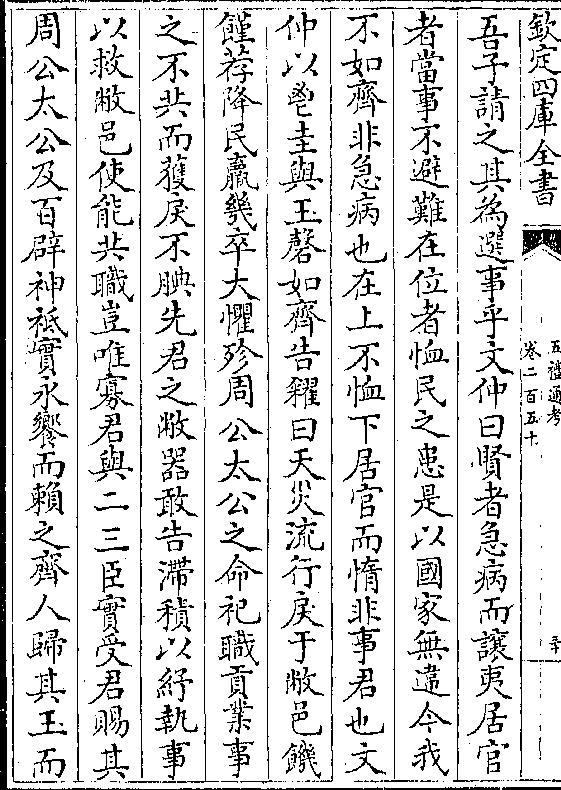 欽定四庫全書
五禮通考
卷二百五十
吾子請之其為選事乎文仲曰賢者急病而讓夷居官
者當事不避難在位者恤民之患是以國家無違今我
不如齊非急病也在上不恤下居官而惰非事君也文
仲以鬯圭與玉磬如齊告糴曰天災流行戾于敝邑饑
饉荐降民羸幾卒大懼殄周公太公之命祀職貢業事
之不共而獲戾不腆先君之敝器敢告滯積以紓執事
以救敝邑使能共職豈唯寡君與二三臣實受君賜其
周公太公及百辟神祇實永饗而賴之齊人歸其玉而